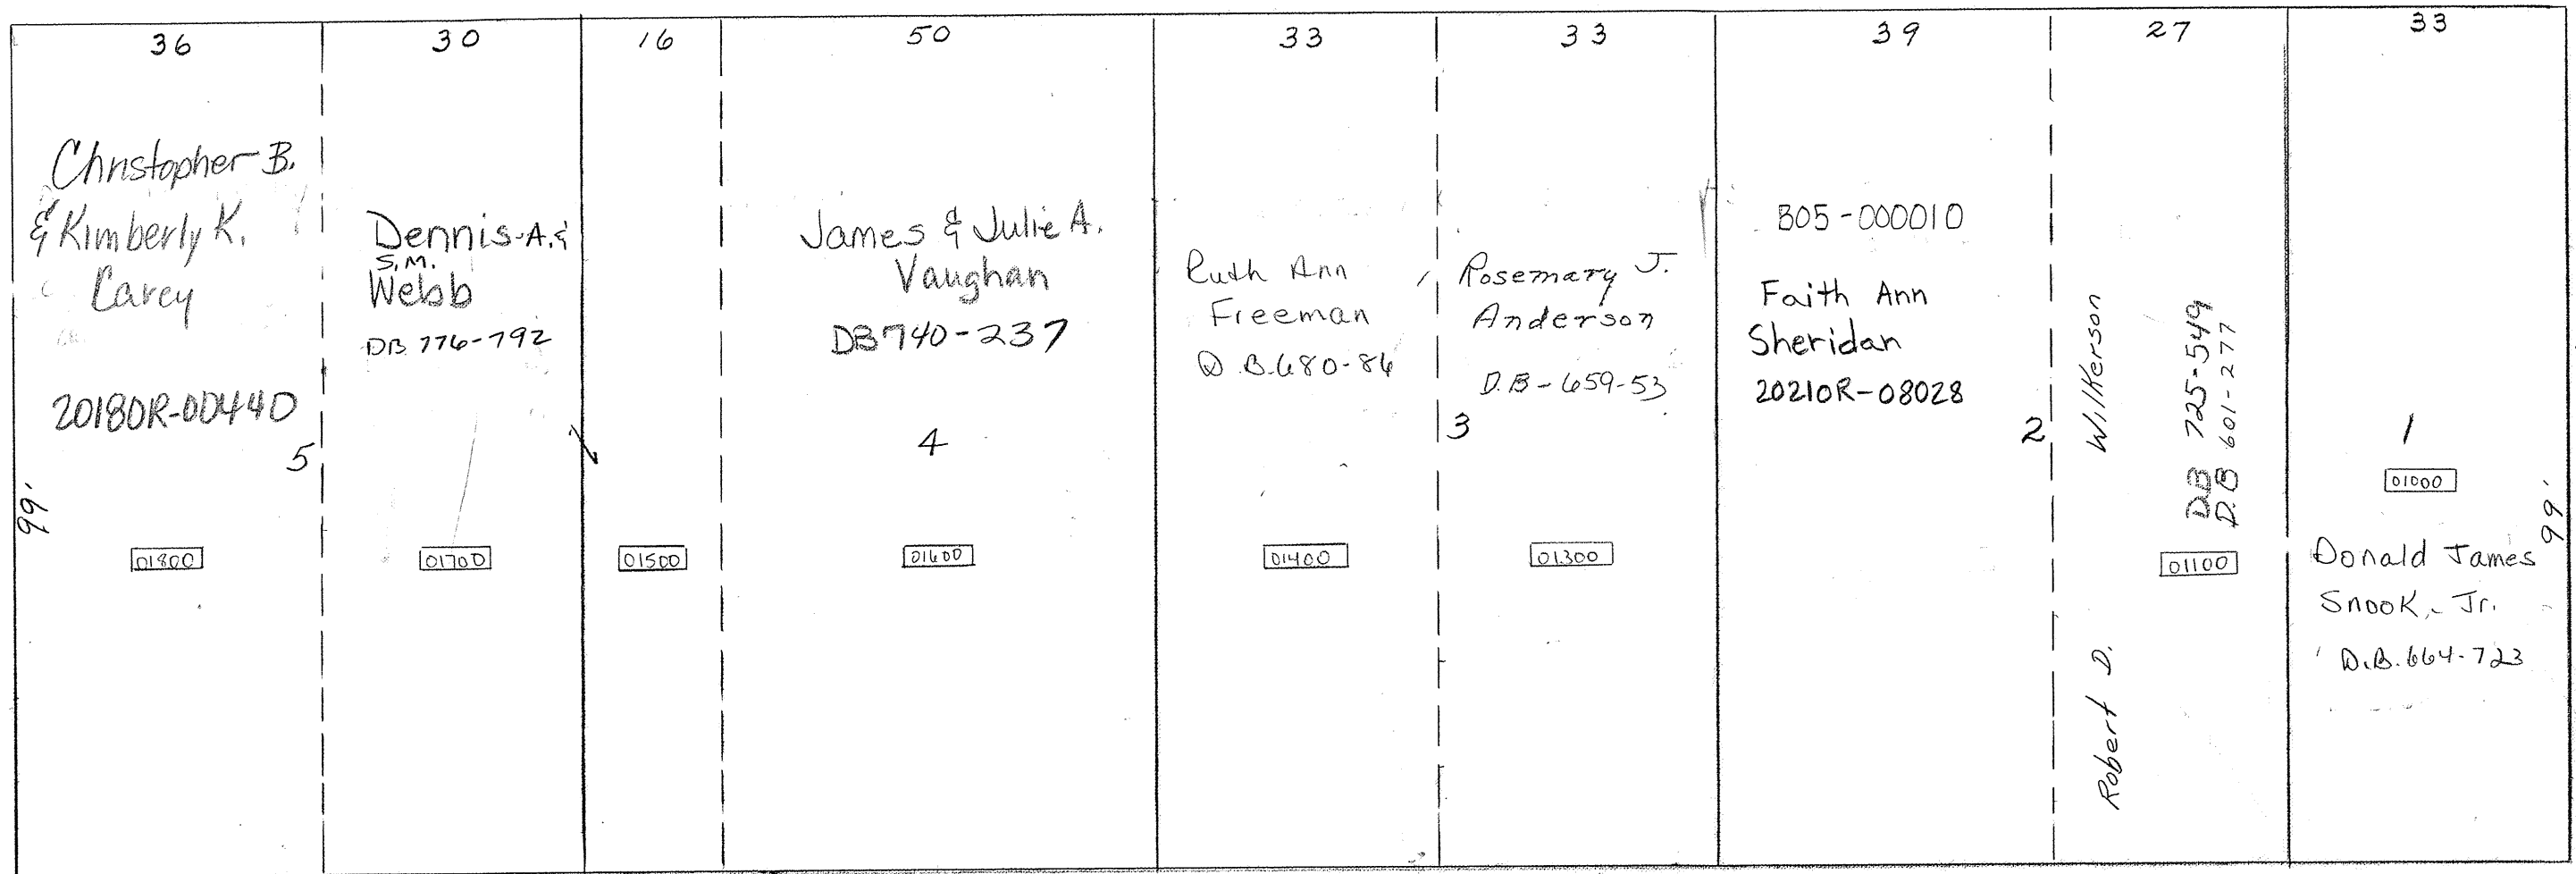 36
30
16
50
33
33
39
27
33
Christopher B.
& Kimberly K.
Carey
20180R-00440
5
99'
01800
Dennis A. &
S.M.
Webb
DB 776-792
01700
01500
James & Julie A.
Vaughan
DB 740-237
4
01600
Ruth Ann
Freeman
D.B. 680-86
01400
Rosemary J.
Anderson
D.B-659-53
3
01300
B05-000010
Faith Ann
Sheridan
20210R-08028
2
Robert D. Wilkerson
DB 725-549
D.B 601-277
01100
1
01000
99'
Donald James
Snook, Jr.
D.B. 664-723